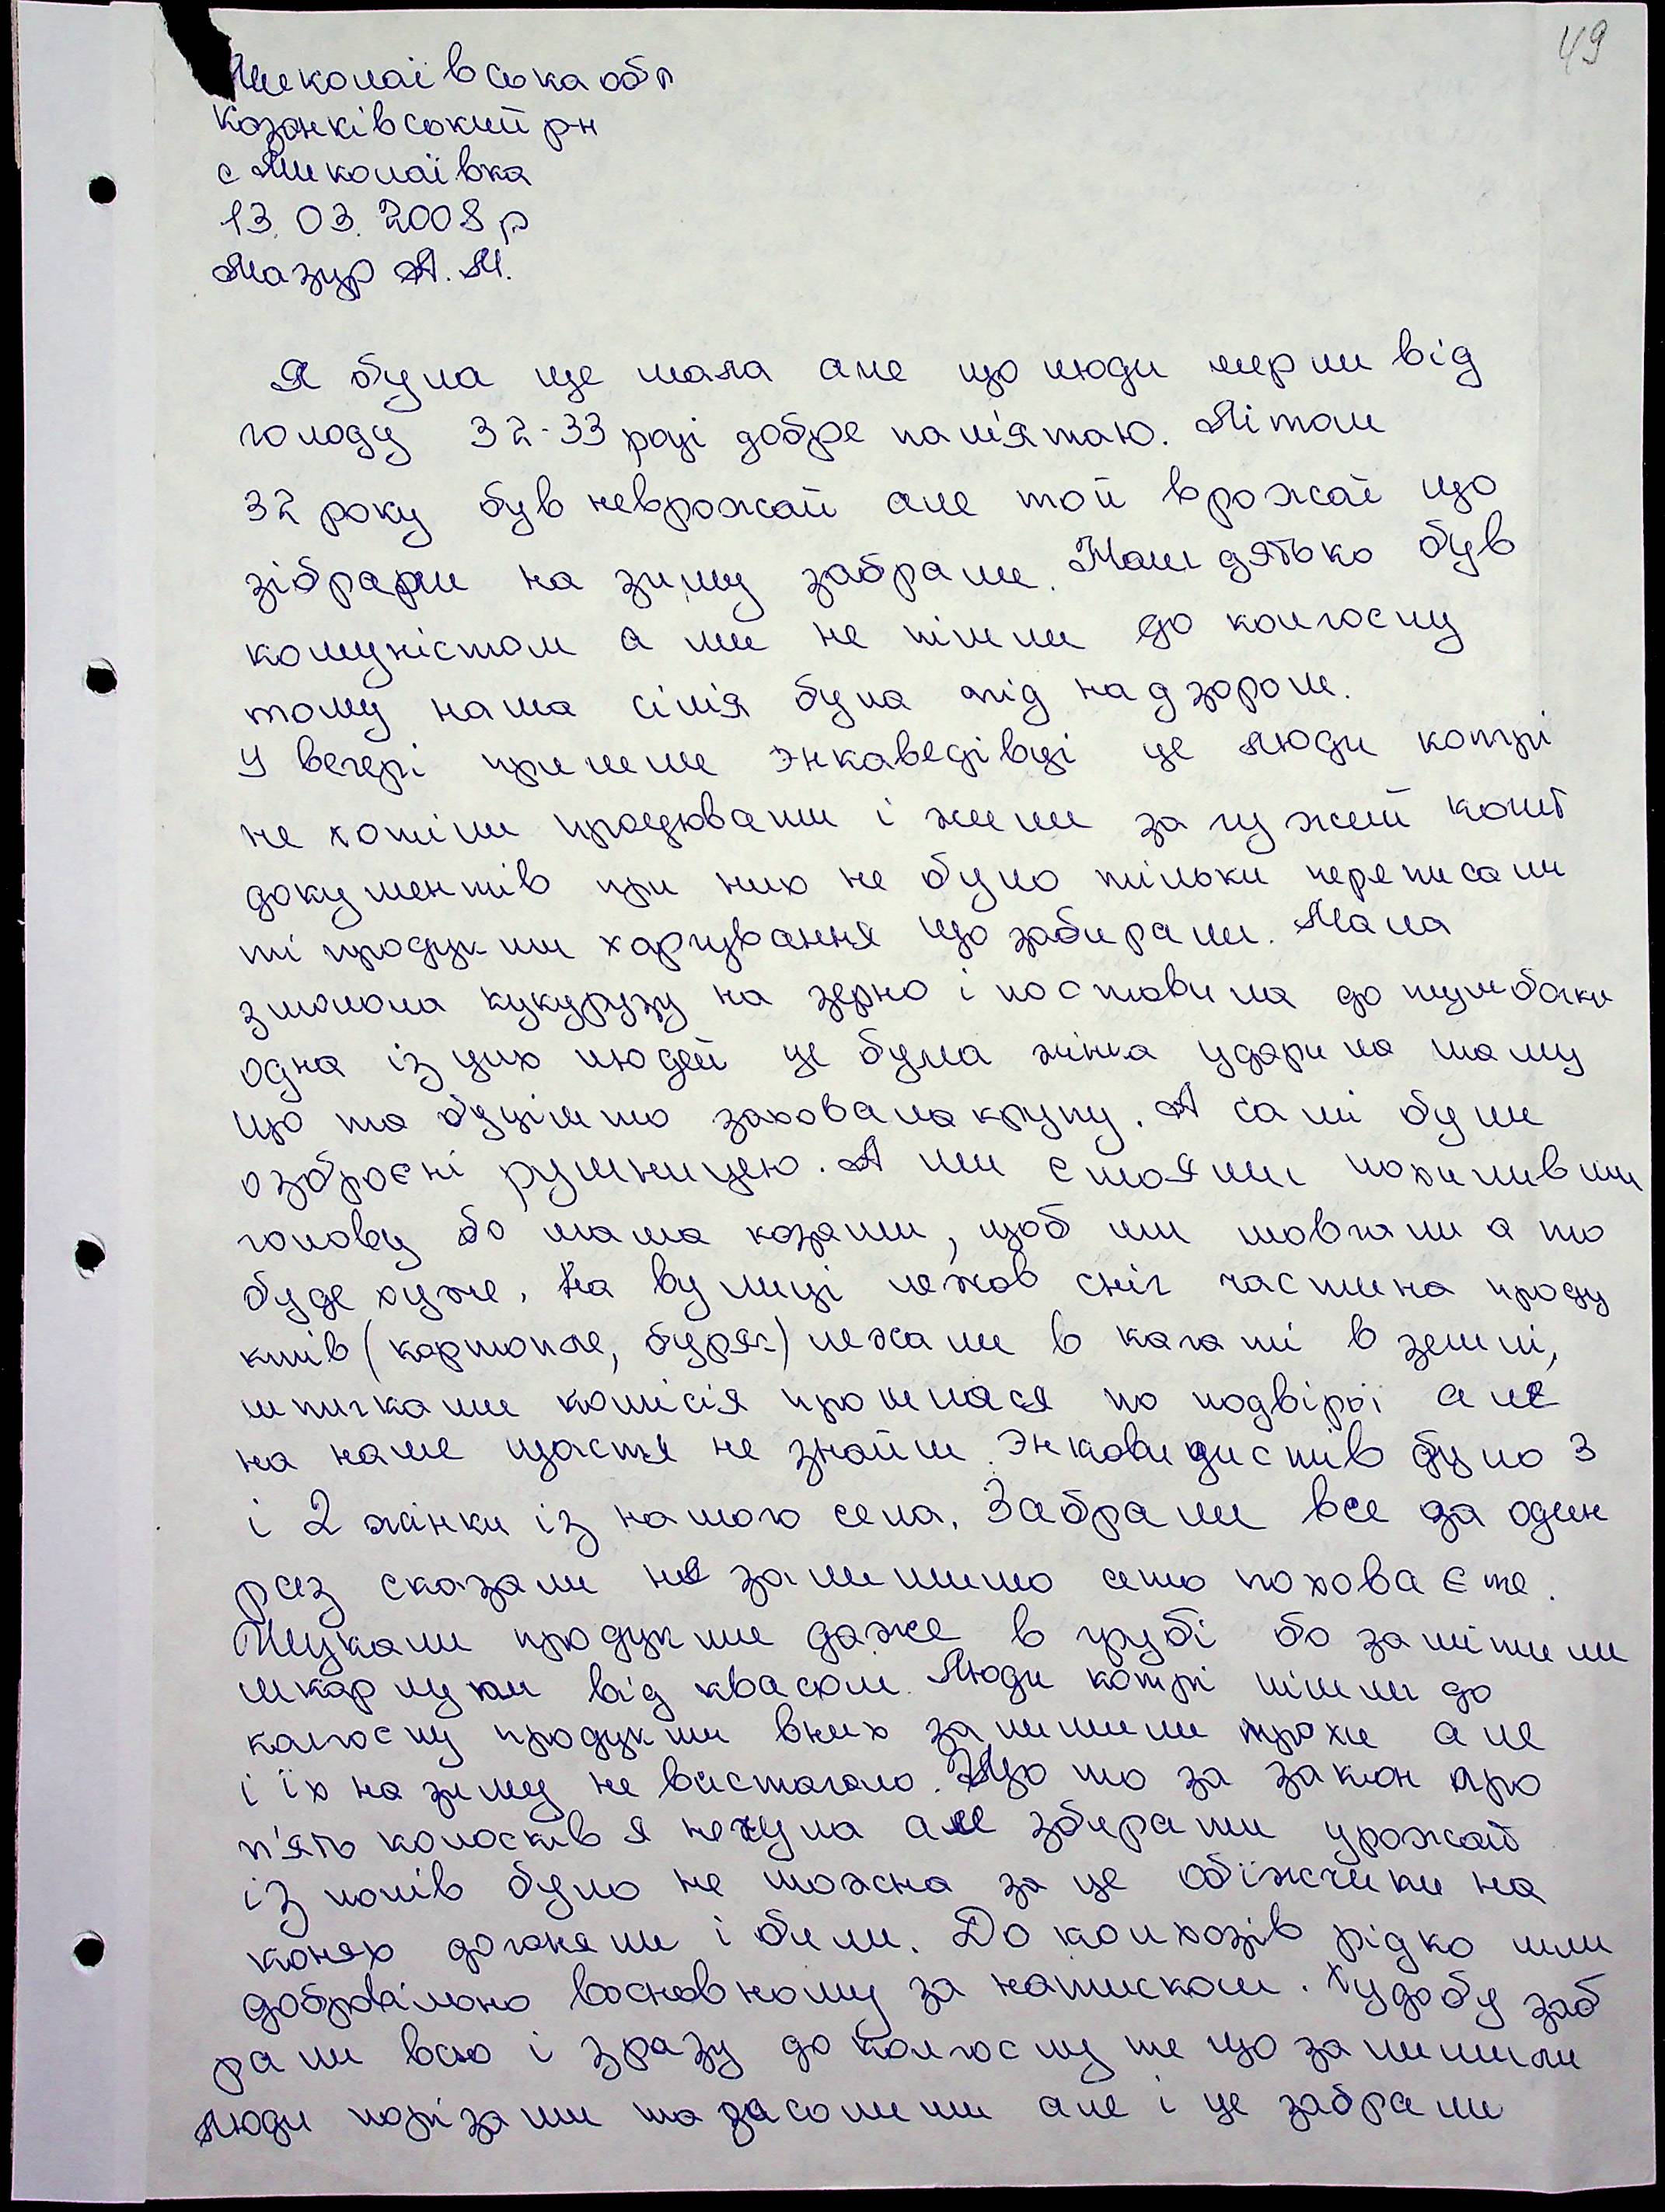 49
Миколаївська обл
Козанківський р-н
с Миколаївка
13. 03. 2008 р
Мазур А. М.
Я була ще мала але що люди мерли від
голоду 32-33 році добре пам'ятаю. Літом
32 року був неврожай але той врожай що
зібрали на зиму забрали. Наш дятько був
комуністом а ми не пішли до колгоспу
тому наша сімія була під надзором.
У вечері прийшли энкаведівці це люди котрі
не хотіли працювати і жили за чужий кошт
документів при них не було тільки переписали
ті продукти харчування що забирали. Мама
змолола кукурузу на зерно і поставила до тумбочки
одна із цих людей це була жінка ударила маму
що та буцім то заховала крупу. А самі були
озброєні рушницею. А ми стояли похиливши
голову бо мама казали, щоб ми мовчали а то
буде хуже. На вулиці лежав сніг частина проду
ктів (картопля, буряк) лежали в кагаті в землі,
шпичками комісія пройшлася по подвірї але
на наше щастя не знайшли. Энкаведистів було 3
і 2 жінки із нашого села. Забрали все за один
раз сказали не залишимо бо поховаєте.
Шукали продукти даже в грубі бо замітили
шкарлупки від квасолі. Люди котрі пішли до
калгоспу продукти вних залишили трохи але
і їх на зиму не вистачало. Що то за закон про
п'ять колосків я нечула але збирати урожай
із полів було не можна за це обїжчики на
конях доганяли і били. До колхозів рідко шли
добровільно восновному за натиском. Худобу заб
рали всю і зразу до колгоспу те що залишили
люди порізали та засолили але і це забрали